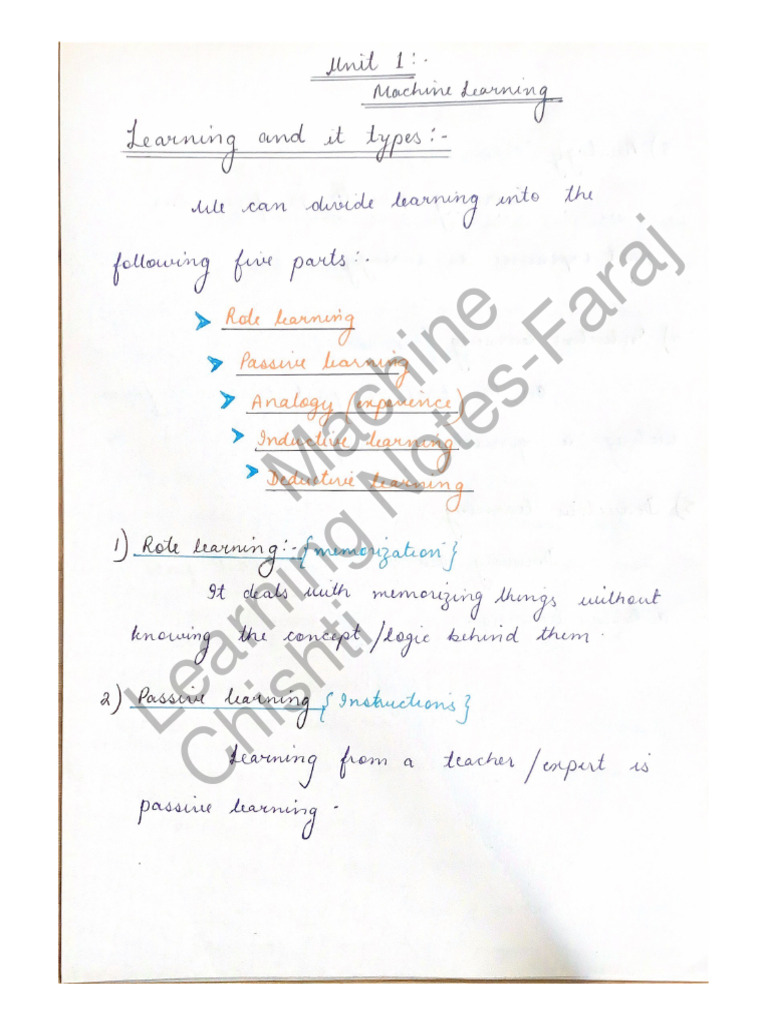 Unit 1:-
Machine Learning
Learning and it types:-
We can divide learning into the
following five parts:-
Role learning
Passive learning
Analogy (experience)
Inductive learning
Deductive learning
1) Rote learning:- {memorization}
It deals with memorizing things without
knowing the concept/logic behind them.
2) Passive learning {Instructions}
Learning from a teacher/expert is
passive learning.
Machine
Learning Notes-Faraj
Chishti